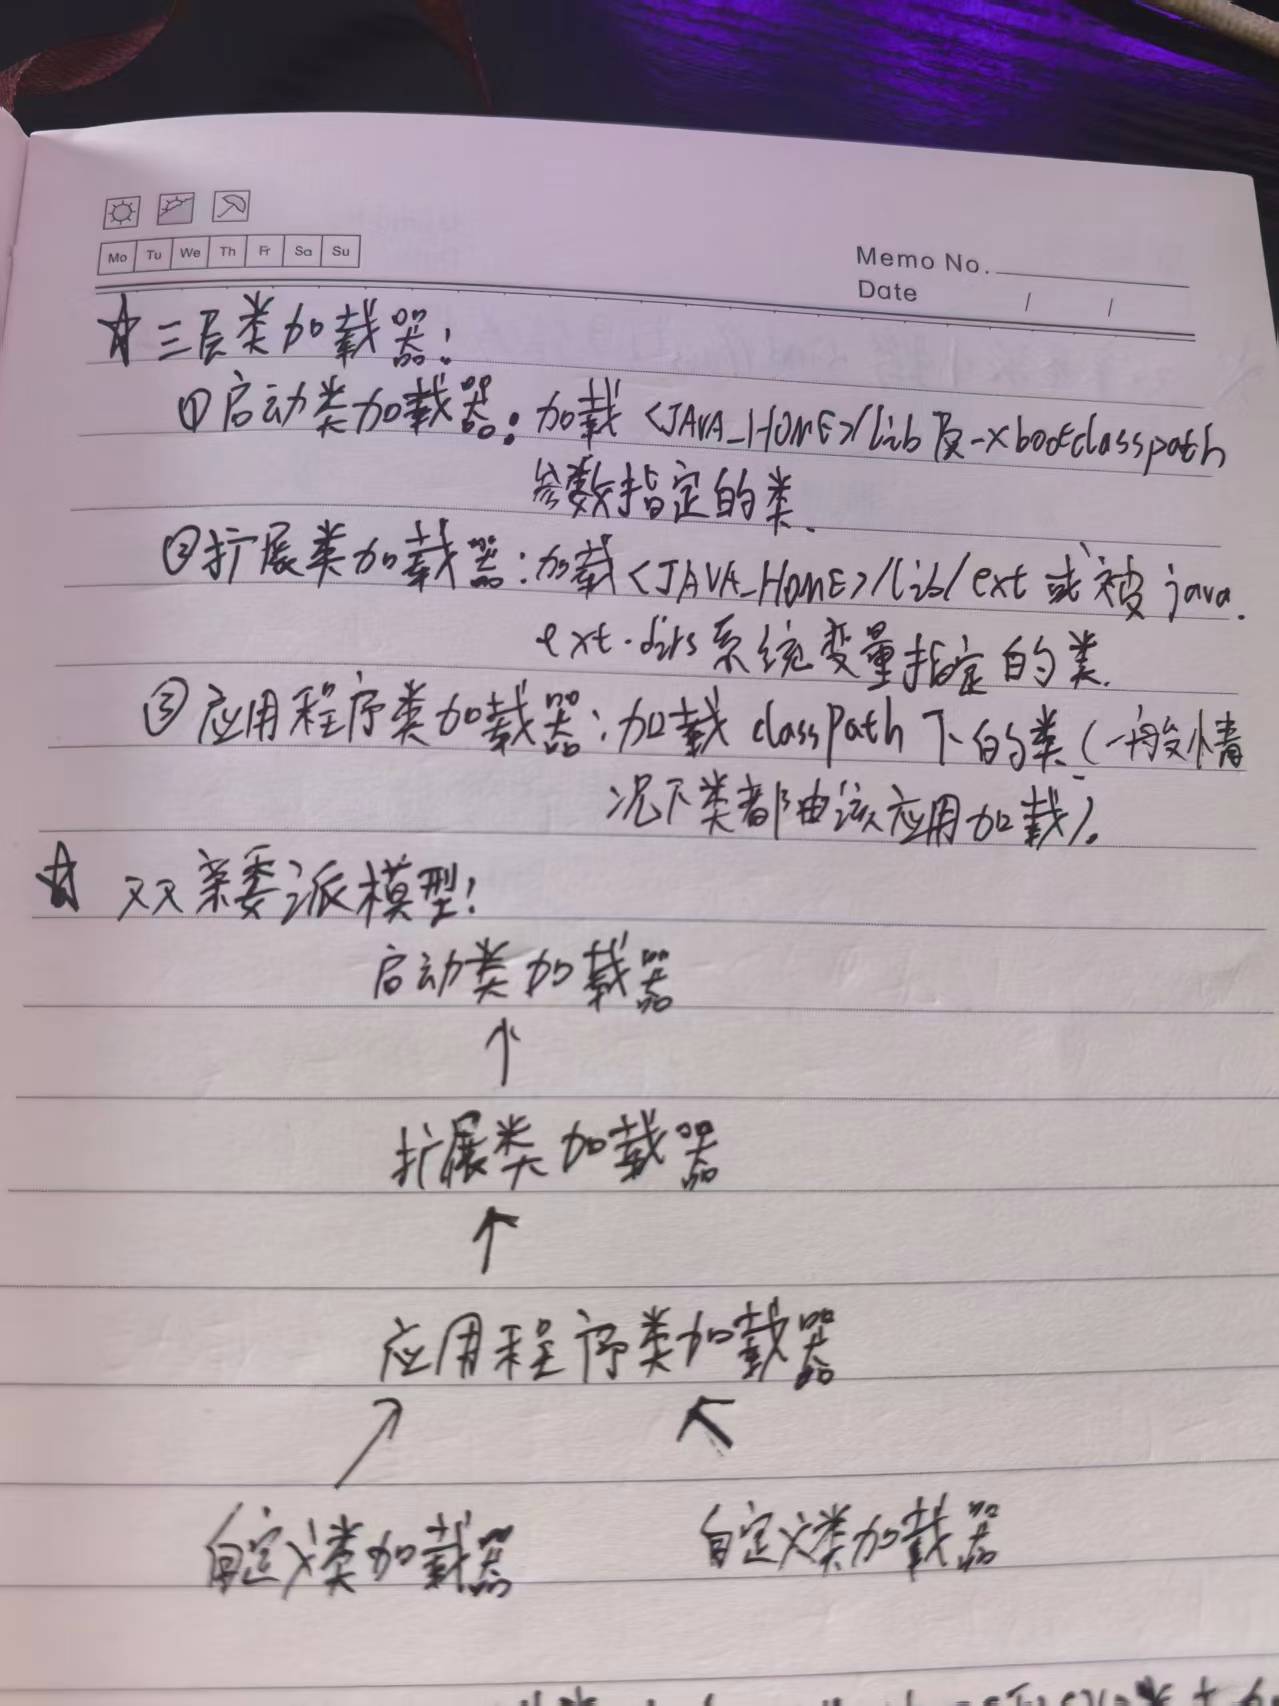 Mo Tu We Th Fr Sa Su
Memo No.
Date / /
☆三层类加载器:
①启动类加载器:加载<JAVA_HOME>/lib及-xbootclasspath
参数指定的类.
②扩展类加载器:加载<JAVA_HOME>/lib/ext或被java.
ext.dirs系统变量指定的类.
③应用程序类加载器:加载classPath下的类(一般情
况下类都由该应用加载).
☆双亲委派模型:
启动类加载器
↑
扩展类加载器
↑
应用程序类加载器
↗ ↖
自定义类加载器 自定义类加载器